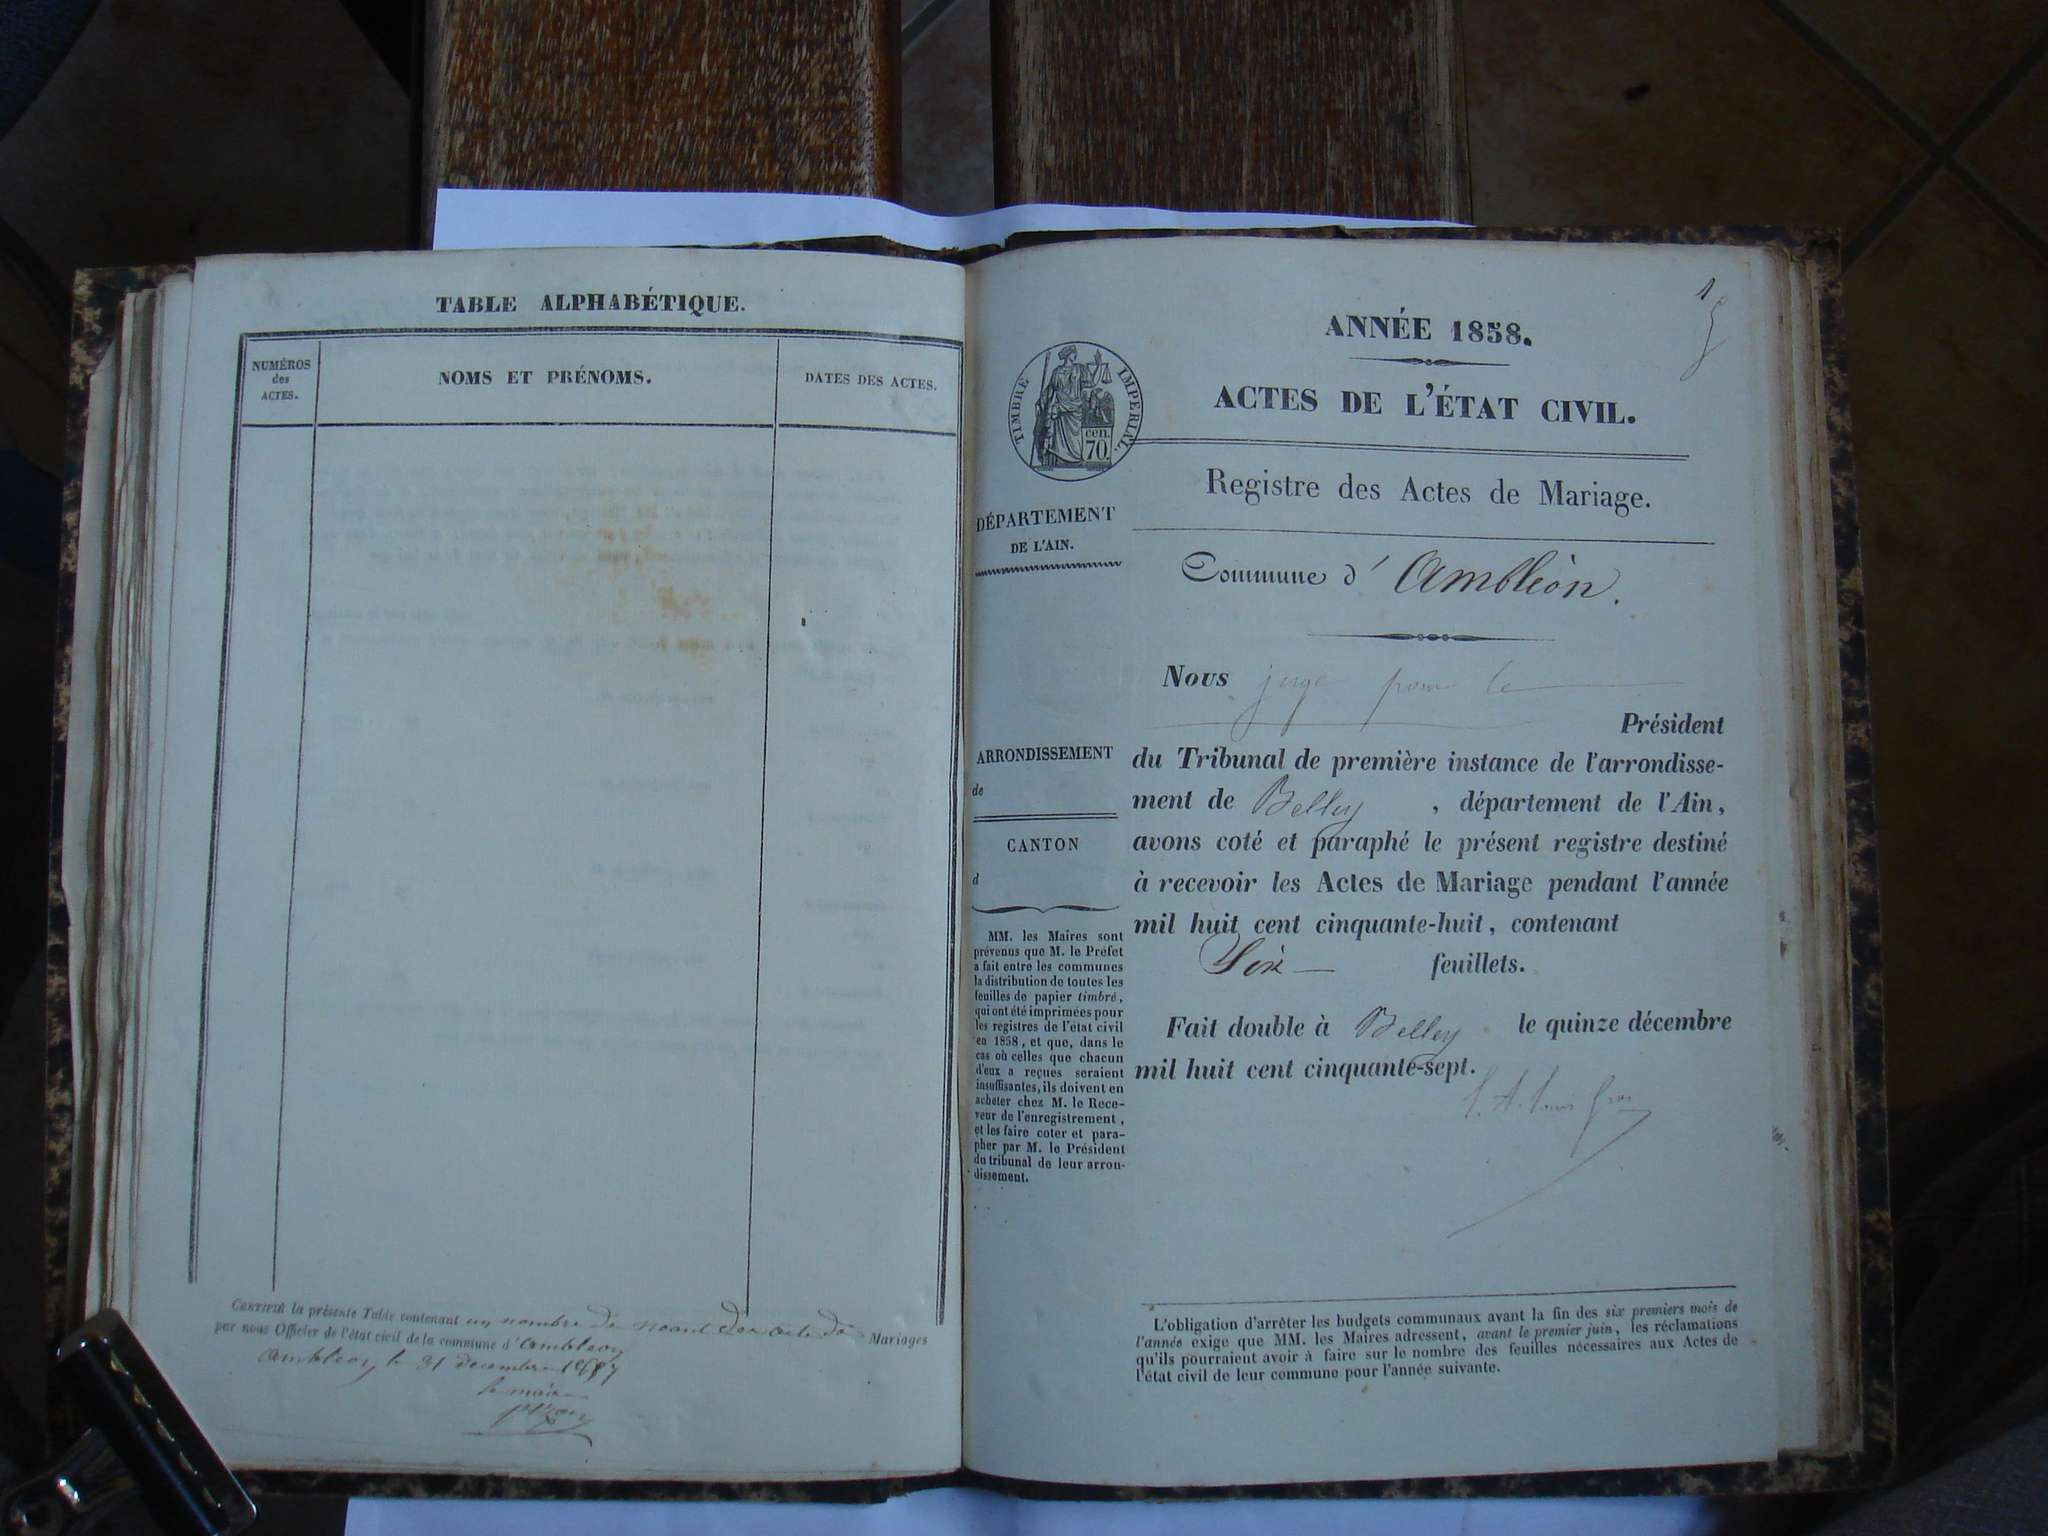 TABLE ALPHABÉTIQUE.
NUMÉROS
des
ACTES.
NOMS ET PRÉNOMS.
DATES DES ACTES.
CERTIFIÉ la présente Table contenant un nombre de neant des acte de Mariages
par nous Officier de l'état civil de la commune d'Ambleon
Ambleon le 31 decembre 1857
le maire
1
ANNÉE 1858.
ACTES DE L'ÉTAT CIVIL.
TIMBRE IMPERIAL.
cen.
70.
Registre des Actes de Mariage.
DÉPARTEMENT
DE L'AIN.
Commune d'Ambléon.
Nous juge pour le
Président
du Tribunal de première instance de l'arrondisse-
ment de Belley, département de l'Ain,
avons coté et paraphé le présent registre destiné
à recevoir les Actes de Mariage pendant l'année
mil huit cent cinquante-huit, contenant
Six feuillets.
Fait double à Belley le quinze décembre
mil huit cent cinquante-sept.
ARRONDISSEMENT
de
CANTON
d
MM. les Maires sont
prévenus que M. le Préfet
a fait entre les communes
la distribution de toutes les
feuilles de papier timbré,
qui ont été imprimées pour
les registres de l'état civil
en 1858, et que, dans le
cas où celles que chacun
d'eux a reçues seraient
insuffisantes, ils doivent en
acheter chez M. le Rece-
veur de l'enregistrement,
et les faire coter et para-
pher par M. le Président
du tribunal de leur arron-
dissement.
L'obligation d'arrêter les budgets communaux avant la fin des six premiers mois de
l'année exige que MM. les Maires adressent, avant le premier juin, les réclamations
qu'ils pourraient avoir à faire sur le nombre des feuilles nécessaires aux Actes de
l'état civil de leur commune pour l'année suivante.